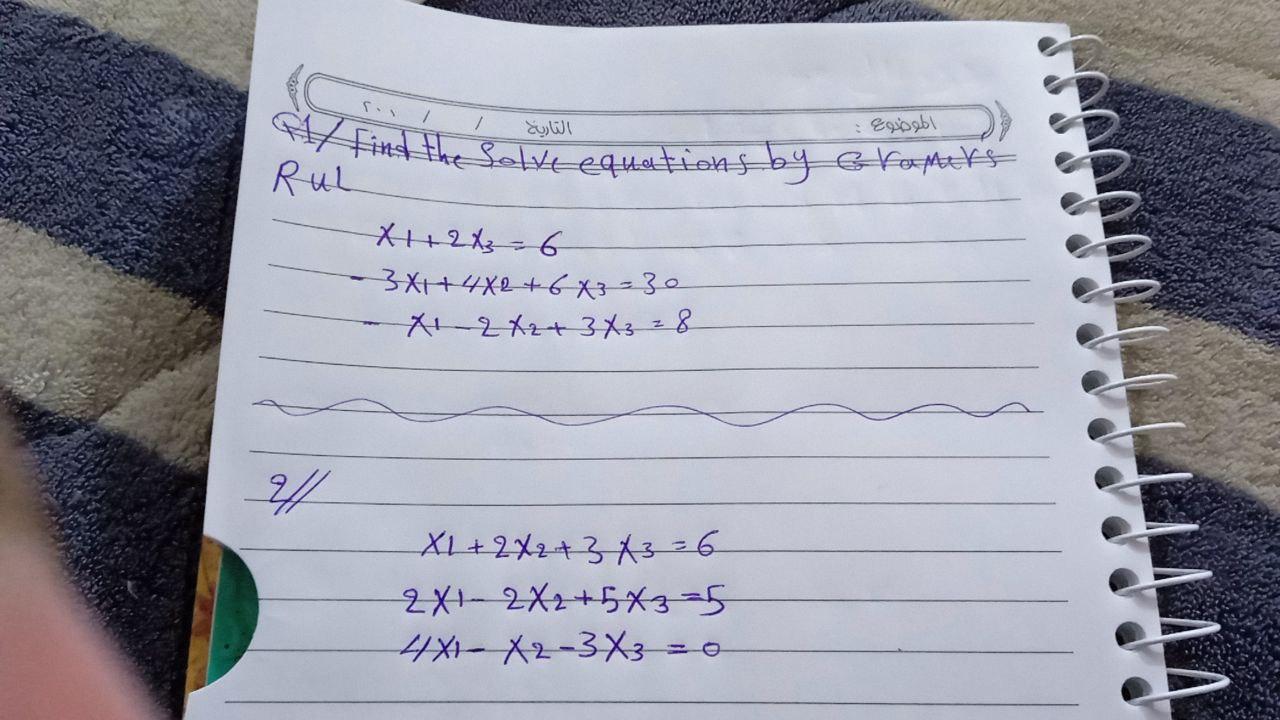 الموضوع : التاريخ / / ٢٠٠
Q1/ Find the Solve equations by Gramers
Rul
x1 + 2x3 = 6
- 3x1 + 4x2 + 6x3 = 30
- x1 - 2x2 + 3x3 = 8
2//
x1 + 2x2 + 3x3 = 6
2x1 - 2x2 + 5x3 = 5
4x1 - x2 - 3x3 = 0